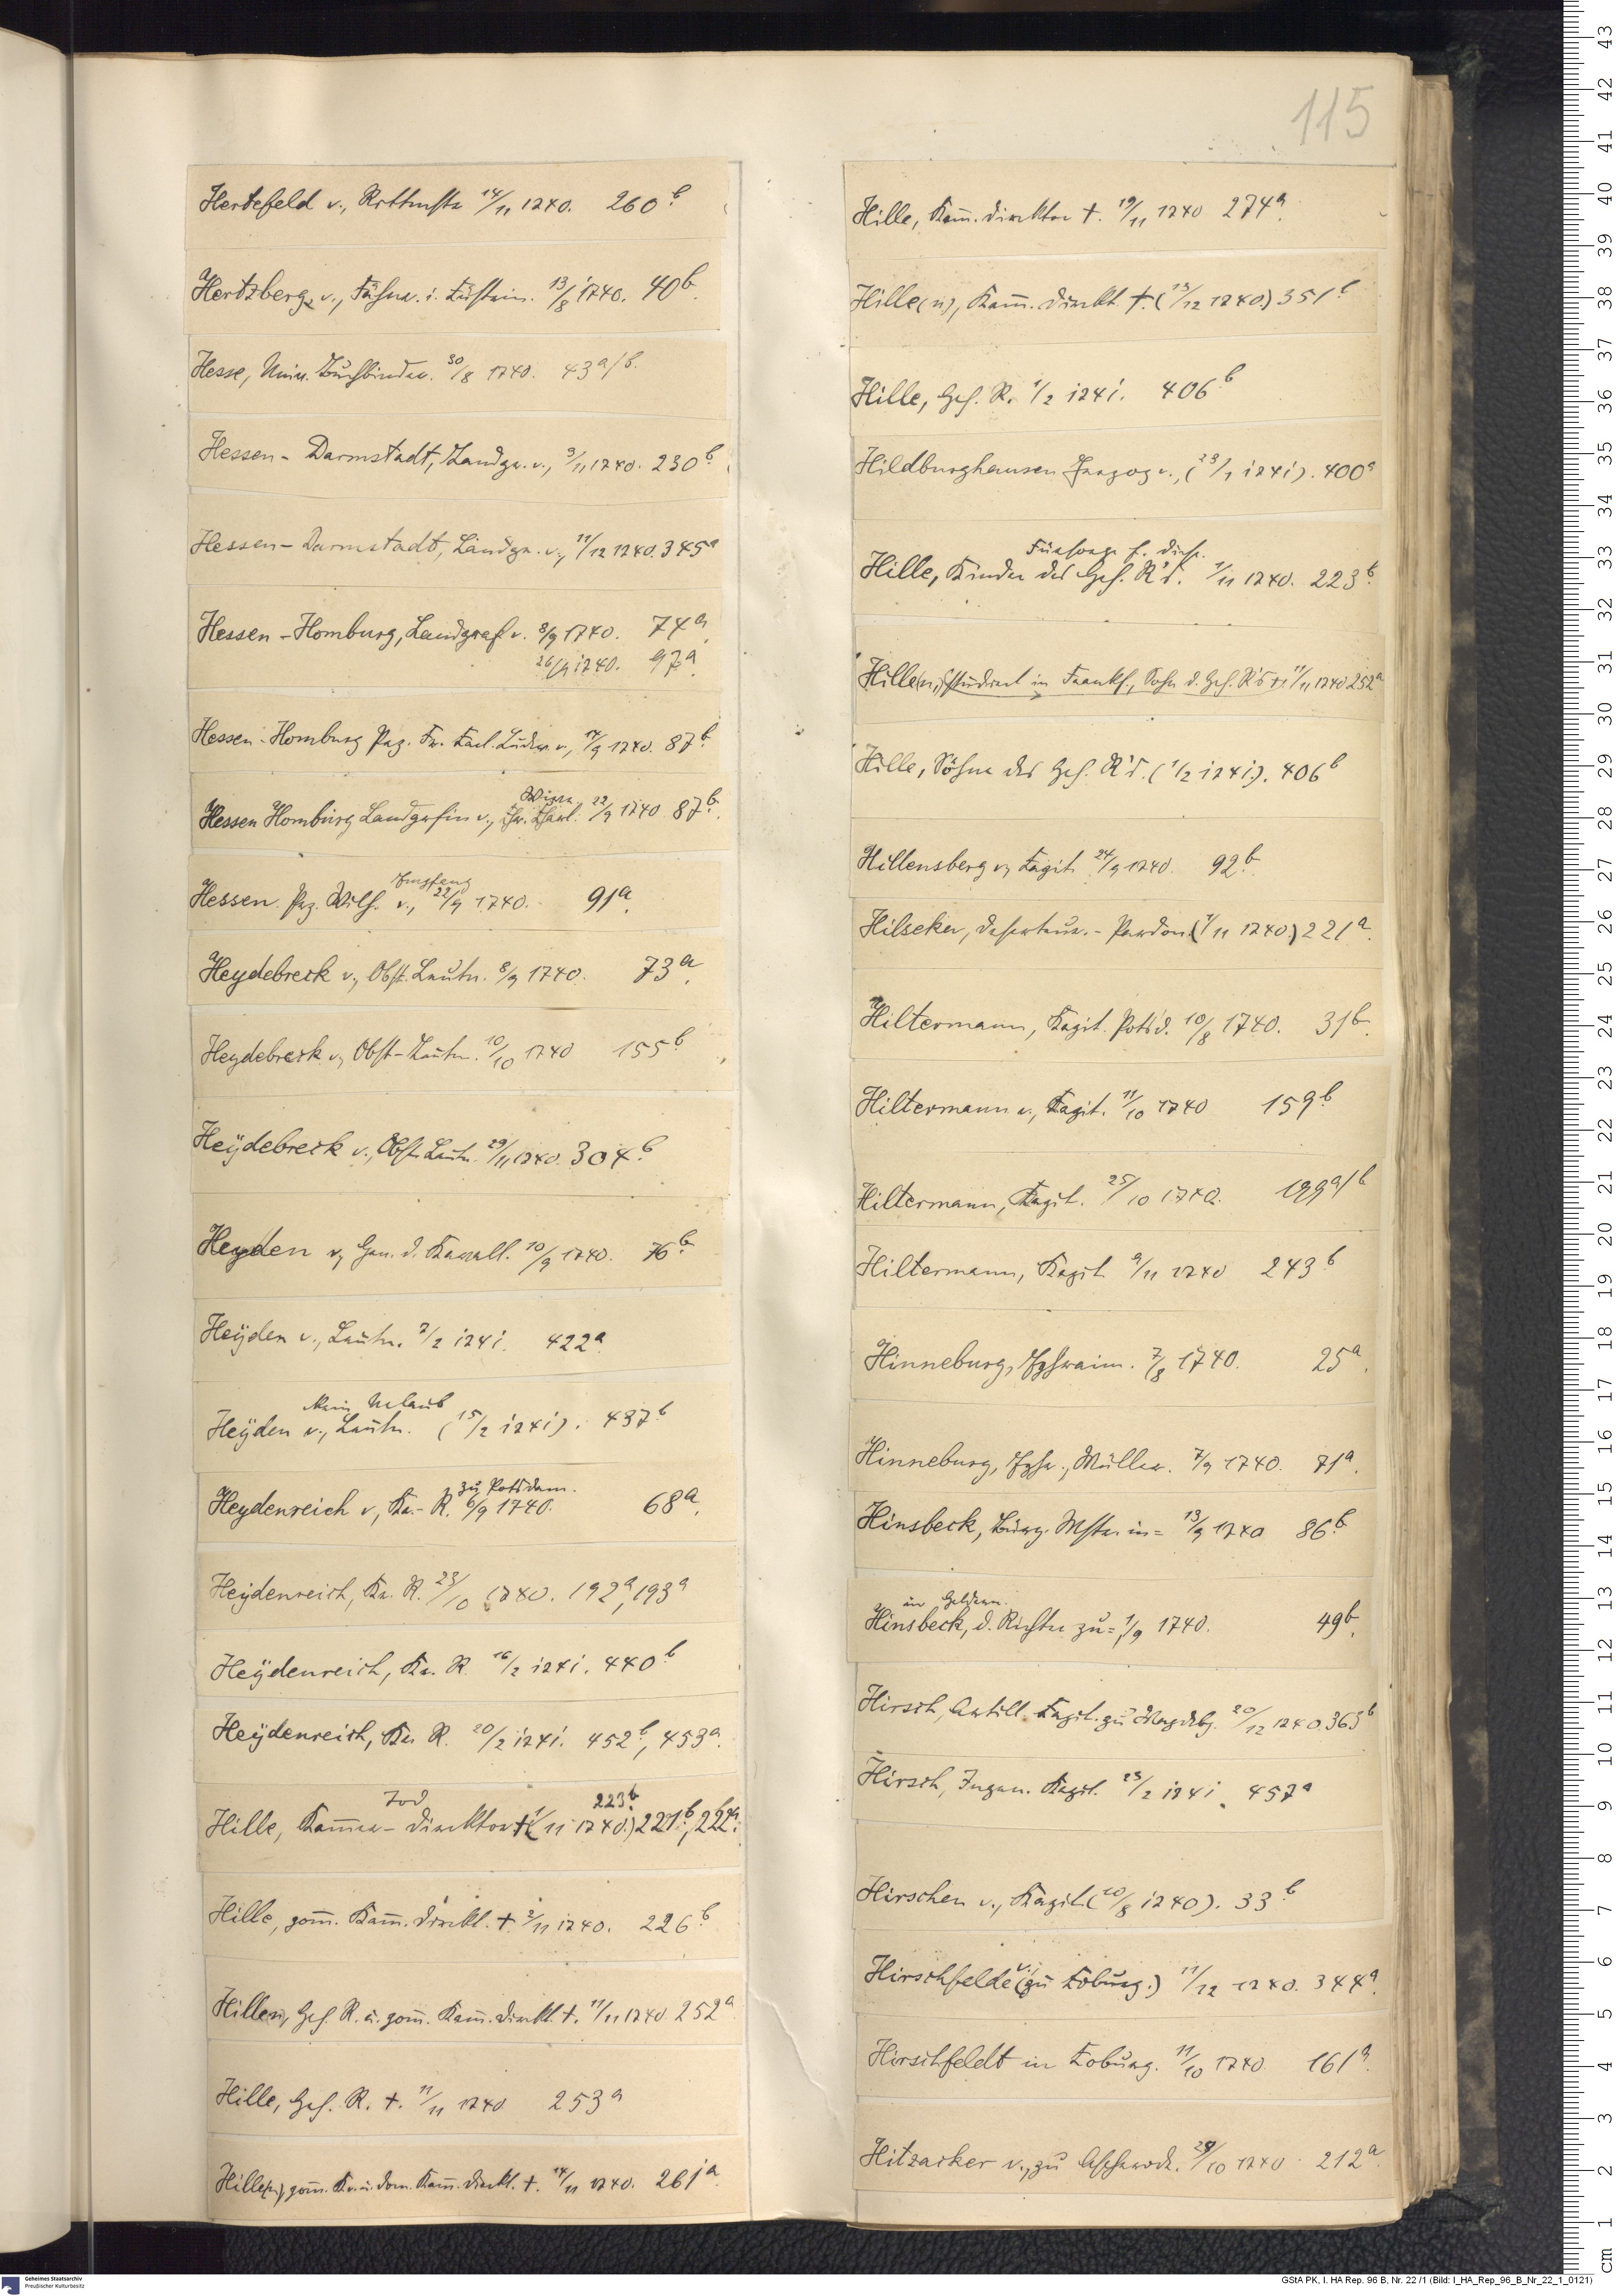 115
Hertefeld v., Rittmstr 14/11 1740. 260b.
Hertzberg, v., Fähnr. i. Cüstrin. 13/8 1740. 40b.
Hesse, Univ. Buchbinder. 30/8 1740. 43a/b.
Hessen-Darmstadt, Landgr. v., 3/11 1740. 230b.
Hessen-Darmstadt, Landgr. v., 11/12 1740. 345a
Hessen-Homburg, Landgraf v. 8/9 1740. 74a.
26/9 1740. 97a.
Hessen-Homburg Prz. Fr. Carl. Ludw. v., 14/9 1740. 87b.
Hessen Homburg Landgrfin v., Chr. Charl. 22/9 1740 87b.
Empfang
Hessen. Prz. Wilh. v., 22/9 1740. 91a.
Heydebreck v., Obst. Leutn. 8/9 1740. 73a.
Heydebreck v., Obst-Leutn. 10/10 1740 155b.
Heÿdebreck v., Obst. Leutn. 29/11 1740. 304b
Heyden v., Gen. d. Kavall. 10/9 1740. 76b.
Heÿden v., Leutn. 7/2 1741. 422a.
Kein Urlaub
Heÿden v., Leutn. (15/2 1741). 437b
zu Potsdam.
Heydenreich v., Kr.-R. 6/9 1740. 68a.
Heydenreich, Kr. R. 23/10 1740. 192a, 193a
Heÿdenreich, Kr. R. 16/2 1741. 440b
Heÿdenreich, Kr. R. 20/2 1741. 452b, 453a.
Tod 223b.
Hille, Kammer-direktor † (1/11 1740.) 221b, 222a.
Hille, pom̄. Kam̄. direkt. † 2/11 1740. 226b
Hille(n), Geh. R. u. pom̄. Kam̄. direkt. †. 11/11 1740 252a
Hille, Geh. R. †. 11/11 1740 253a
Hille(n), pom̄. Kr. u. dom. Kam̄. direkt. †. 14/11 1740. 261a
Hille, Kam̄. direktor †. 19/11 1740 274a.
Hille(n), Kam̄. direkt. †. (13/12 1740.) 351b
Hille, Geh. R. 1/2 1741. 406b
Hildburghausen Herzog v., (23/1 1741). 400a
Fürsorge f. dies.
Hille, Kinder des Geh. R's. 1/11 1740. 223b.
Hille(n), Student in Frankf., Sohn d. Geh. R's †. 11/11 1740 252a
Hille, Söhne des Geh. R's. (1/2 1741). 406b
Hillensberg v., Capit. 24/9 1740. 92b.
Hilseker, deserteur.- Pardon. (1/11 1740.) 221a.
Hiltermann, Kapit. Potsd. 10/8 1740. 31b.
Hiltermann v., Capit. 11/10 1740 159b.
Hiltermann, Capit. 25/10 1740. 199a/b
Hiltermann, Kapit. 9/11 1740 243b
Hinneburg, Ephraim. 7/8 1740. 25a.
Hinneburg, Ephr., Müller. 7/9 1740. 71a.
Hinsbeck, Burg. Mster in= 13/9 1740 86b.
in Geldern.
Hinsbeck, d. Richter zu= 1/9 1740. 49b.
Hirsch, Artill. Capit. zu Magdebg. 20/12 1740. 363b
Hirsch, Ingen. Kapit. 23/2 1741. 457a
Hirschen v., Kapit. (10/8 1740). 33b
Hirschfelde v. (zu Coburg.) 11/12 1740. 344a.
Hirschfeldt in Coburg. 11/10 1740. 161a.
Hitzacker v., zu 29/10 1740. 212a.
43
42
41
40
39
38
37
36
35
34
33
32
31
30
29
28
27
26
25
24
23
22
21
20
19
18
17
16
15
14
13
12
11
10
9
8
7
6
5
4
3
2
1
cm
Geheimes Staatsarchiv
Preußischer Kulturbesitz
GStA PK, I. HA Rep. 96 B, Nr. 22 /1 (Bild: I_HA_Rep_96_B_Nr_22_1_0121)